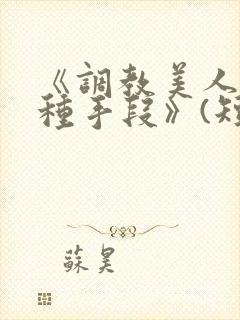 《調教美人
種手段》(短
蘇昊